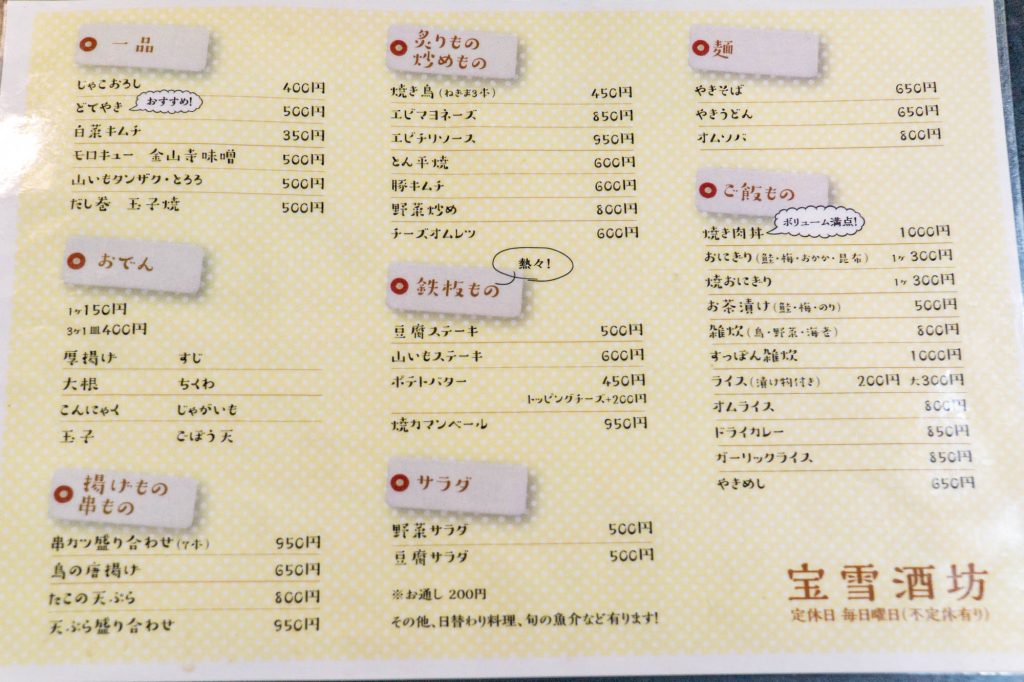 一品
じゃこおろし 400円
どてやき おすすめ! 500円
白菜キムチ 350円
モロキュー 金山寺味噌 500円
山いもタンザク・とろろ 500円
だし巻 玉子焼 500円
おでん
1ヶ150円
3ヶ1皿400円
厚揚げ すじ
大根 ちくわ
こんにゃく じゃがいも
玉子 ごぼう天
揚げもの
串もの
串カツ盛り合わせ(7ホ) 950円
鳥の唐揚げ 650円
たこの天ぷら 800円
天ぷら盛り合わせ 950円
炙りもの
炒めもの
焼き鳥(ねぎま3ホ) 450円
エビマヨネーズ 850円
エビチリソース 950円
とん平焼 600円
豚キムチ 600円
野菜炒め 800円
チーズオムレツ 600円
鉄板もの 熱々!
豆腐ステーキ 500円
山いもステーキ 600円
ポテトバター 450円
トッピングチーズ+200円
焼カマンベール 950円
サラダ
野菜サラダ 500円
豆腐サラダ 500円
※お通し 200円
その他、日替わり料理、旬の魚介など有ります!
麺
やきそば 650円
やきうどん 650円
オムソバ 800円
ご飯もの
ボリューム満点!
焼き肉丼 1000円
おにぎり(鮭・梅・おかか・昆布) 1ヶ300円
焼おにぎり 1ヶ300円
お茶漬け(鮭・梅・のり) 500円
雑炊(鳥・野菜・海老) 800円
すっぽん雑炊 1000円
ライス(漬け物付き) 200円 大300円
オムライス 800円
ドライカレー 850円
ガーリックライス 850円
やきめし 650円
宝雪酒坊
定休日 毎日曜日(不定休有り)